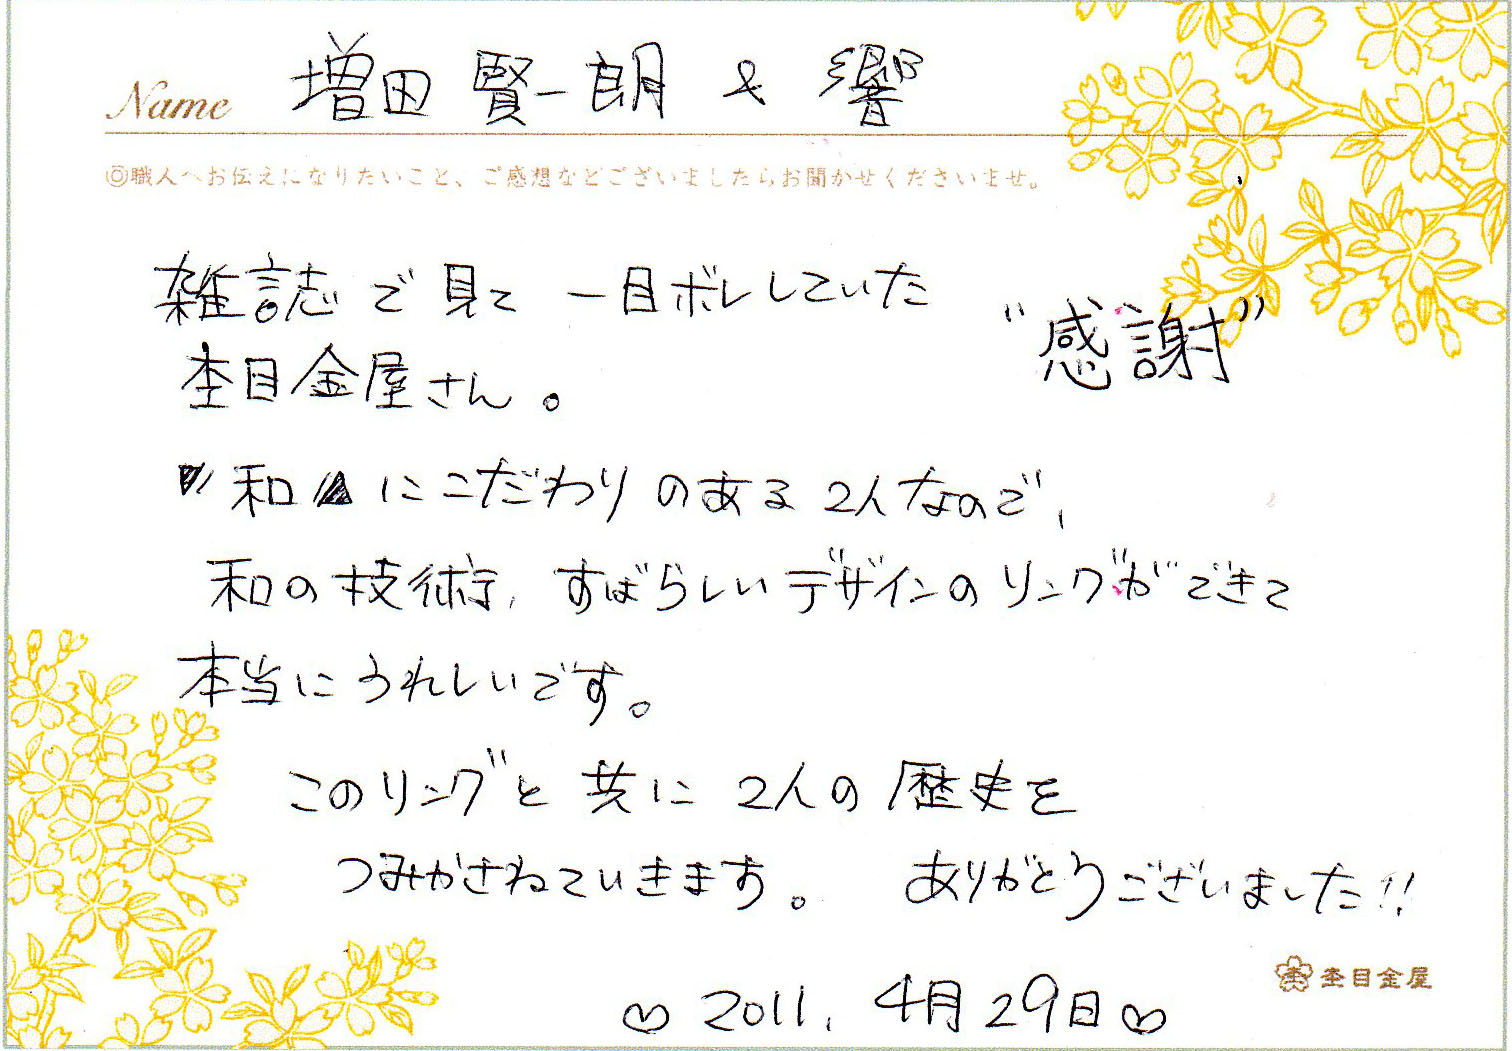 Name 増田 賢一朗 & 響
◎職人へお伝えになりたいこと、ご感想などございましたらお聞かせくださいませ。
雑誌で見て 一目ボレしていた
杢目金屋さん。
"感謝"
"和" にこだわりのある 2人なので、
和の技術、すばらしいデザインのリングができて
本当にうれしいです。
このリングと共に 2人の歴史を
つみかさねていきます。 ありがとうございました!!
杢目金屋
♡ 2011. 4月29日 ♡